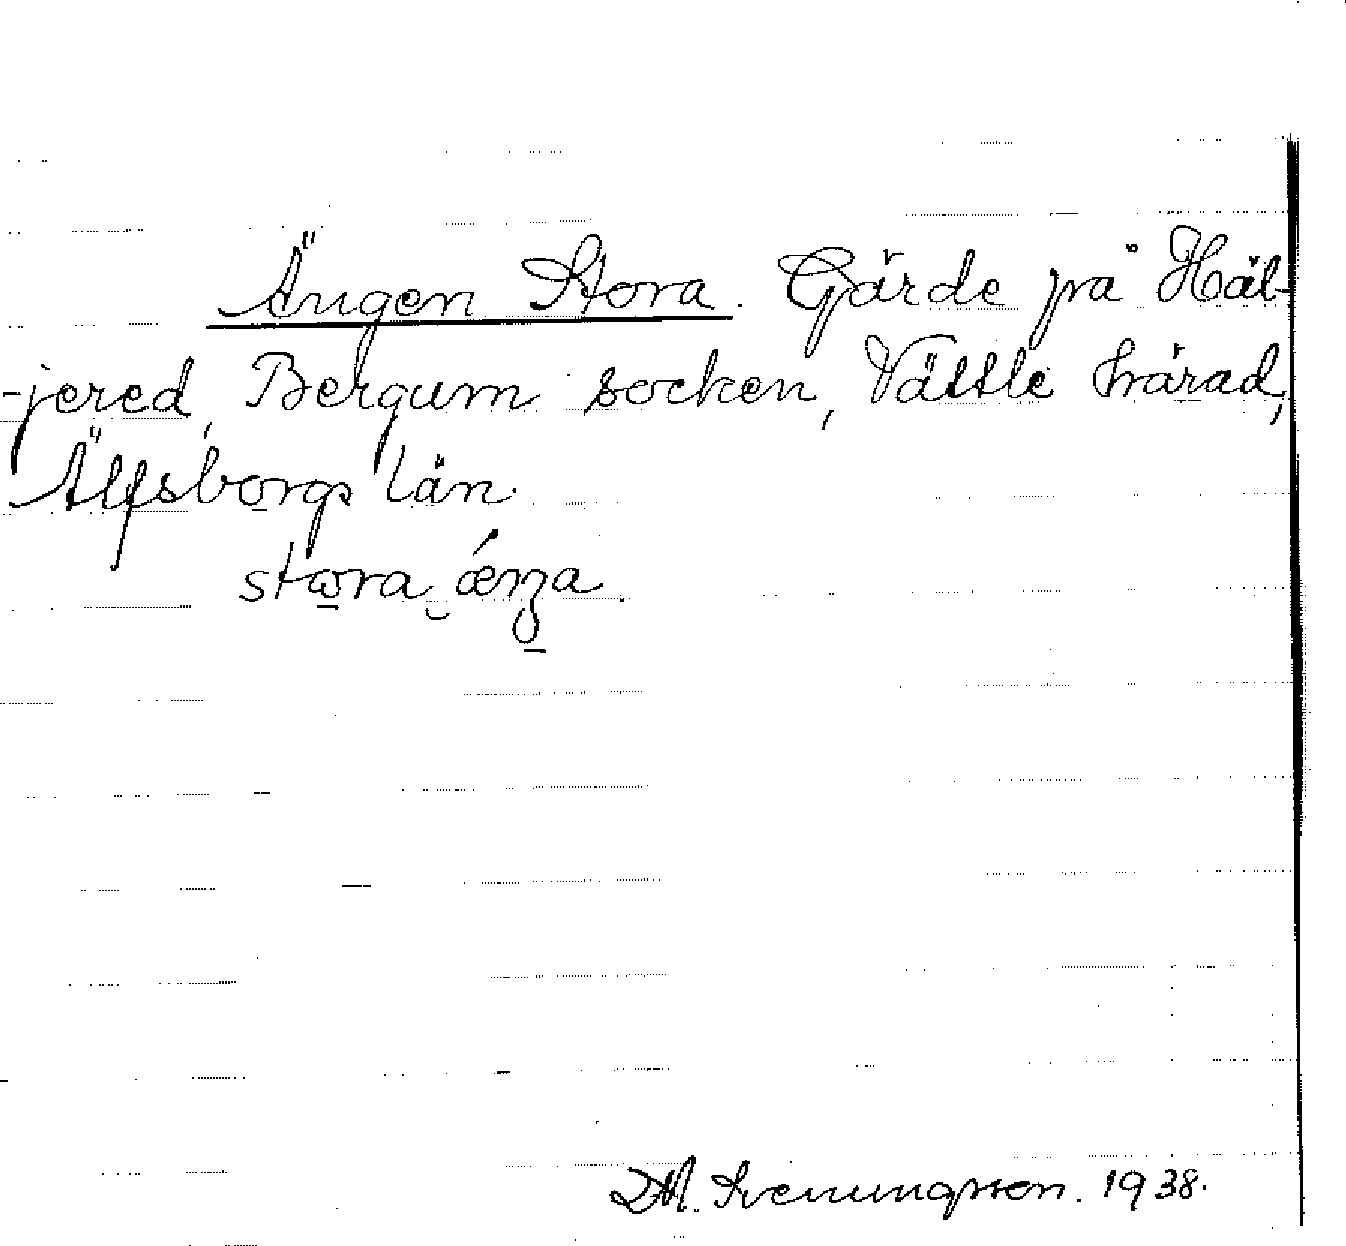 Ängen Stora. Gärde på Häl-
-jered, Bergum socken, Vättle härad,
Älfsborgs län.
stora ǽŋa.
D.A. Svenungsson. 1938.